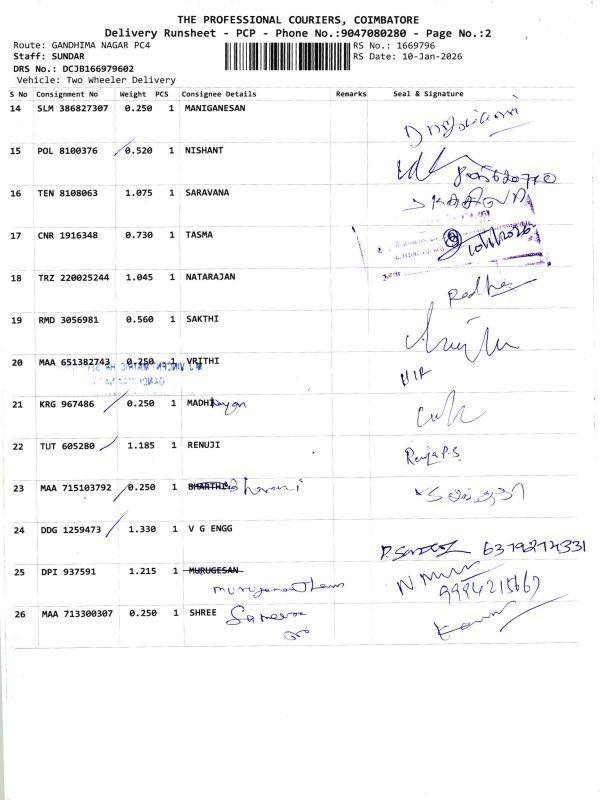 THE PROFESSIONAL COURIERS, COIMBATORE
Delivery Runsheet - PCP - Phone No.:9047080280 - Page No.:2
Route: GANDHIMA NAGAR PC4 RS No.: 1669796
Staff: SUNDAR RS Date: 10-Jan-2026
DRS No.: DCJB166979602
Vehicle: Two Wheeler Delivery
S No Consignment No Weight PCS Consignee Details Remarks Seal & Signature
14 SLM 386827307 0.250 1 MANIGANESAN
15 POL 8100376 0.520 1 NISHANT
16 TEN 8108063 1.075 1 SARAVANA
17 CNR 1916348 0.730 1 TASMA 10/1/2026
18 TRZ 220025244 1.045 1 NATARAJAN Radha
19 RMD 3056981 0.560 1 SAKTHI
20 MAA 651382743 0.250 1 VRITHI
21 KRG 967486 0.250 1 MADHI
22 TUT 605280 1.185 1 RENUJI Renja P.S
23 MAA 715103792 0.250 1 BHARTHI Bharani
24 DDG 1259473 1.330 1 V G ENGG
6379274331
25 DPI 937591 1.215 1 MURUGESAN
muruganantham 9994215667
26 MAA 713300307 0.250 1 SHREE Sameera